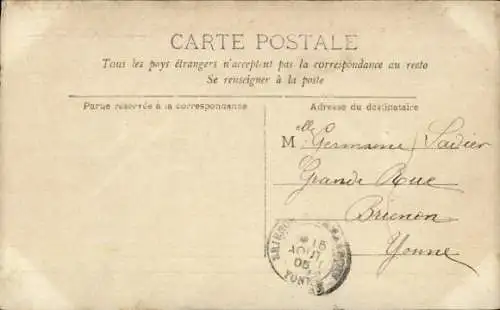 CARTE POSTALE
Tous les pays étrangers n'acceptent pas la correspondance au recto
Se renseigner à la poste
Partie réservée à la correspondance
Adresse du destinataire
Melle Germaine
Grande Rue
Brienon
Yonne
15
AOUT
05
YONNE